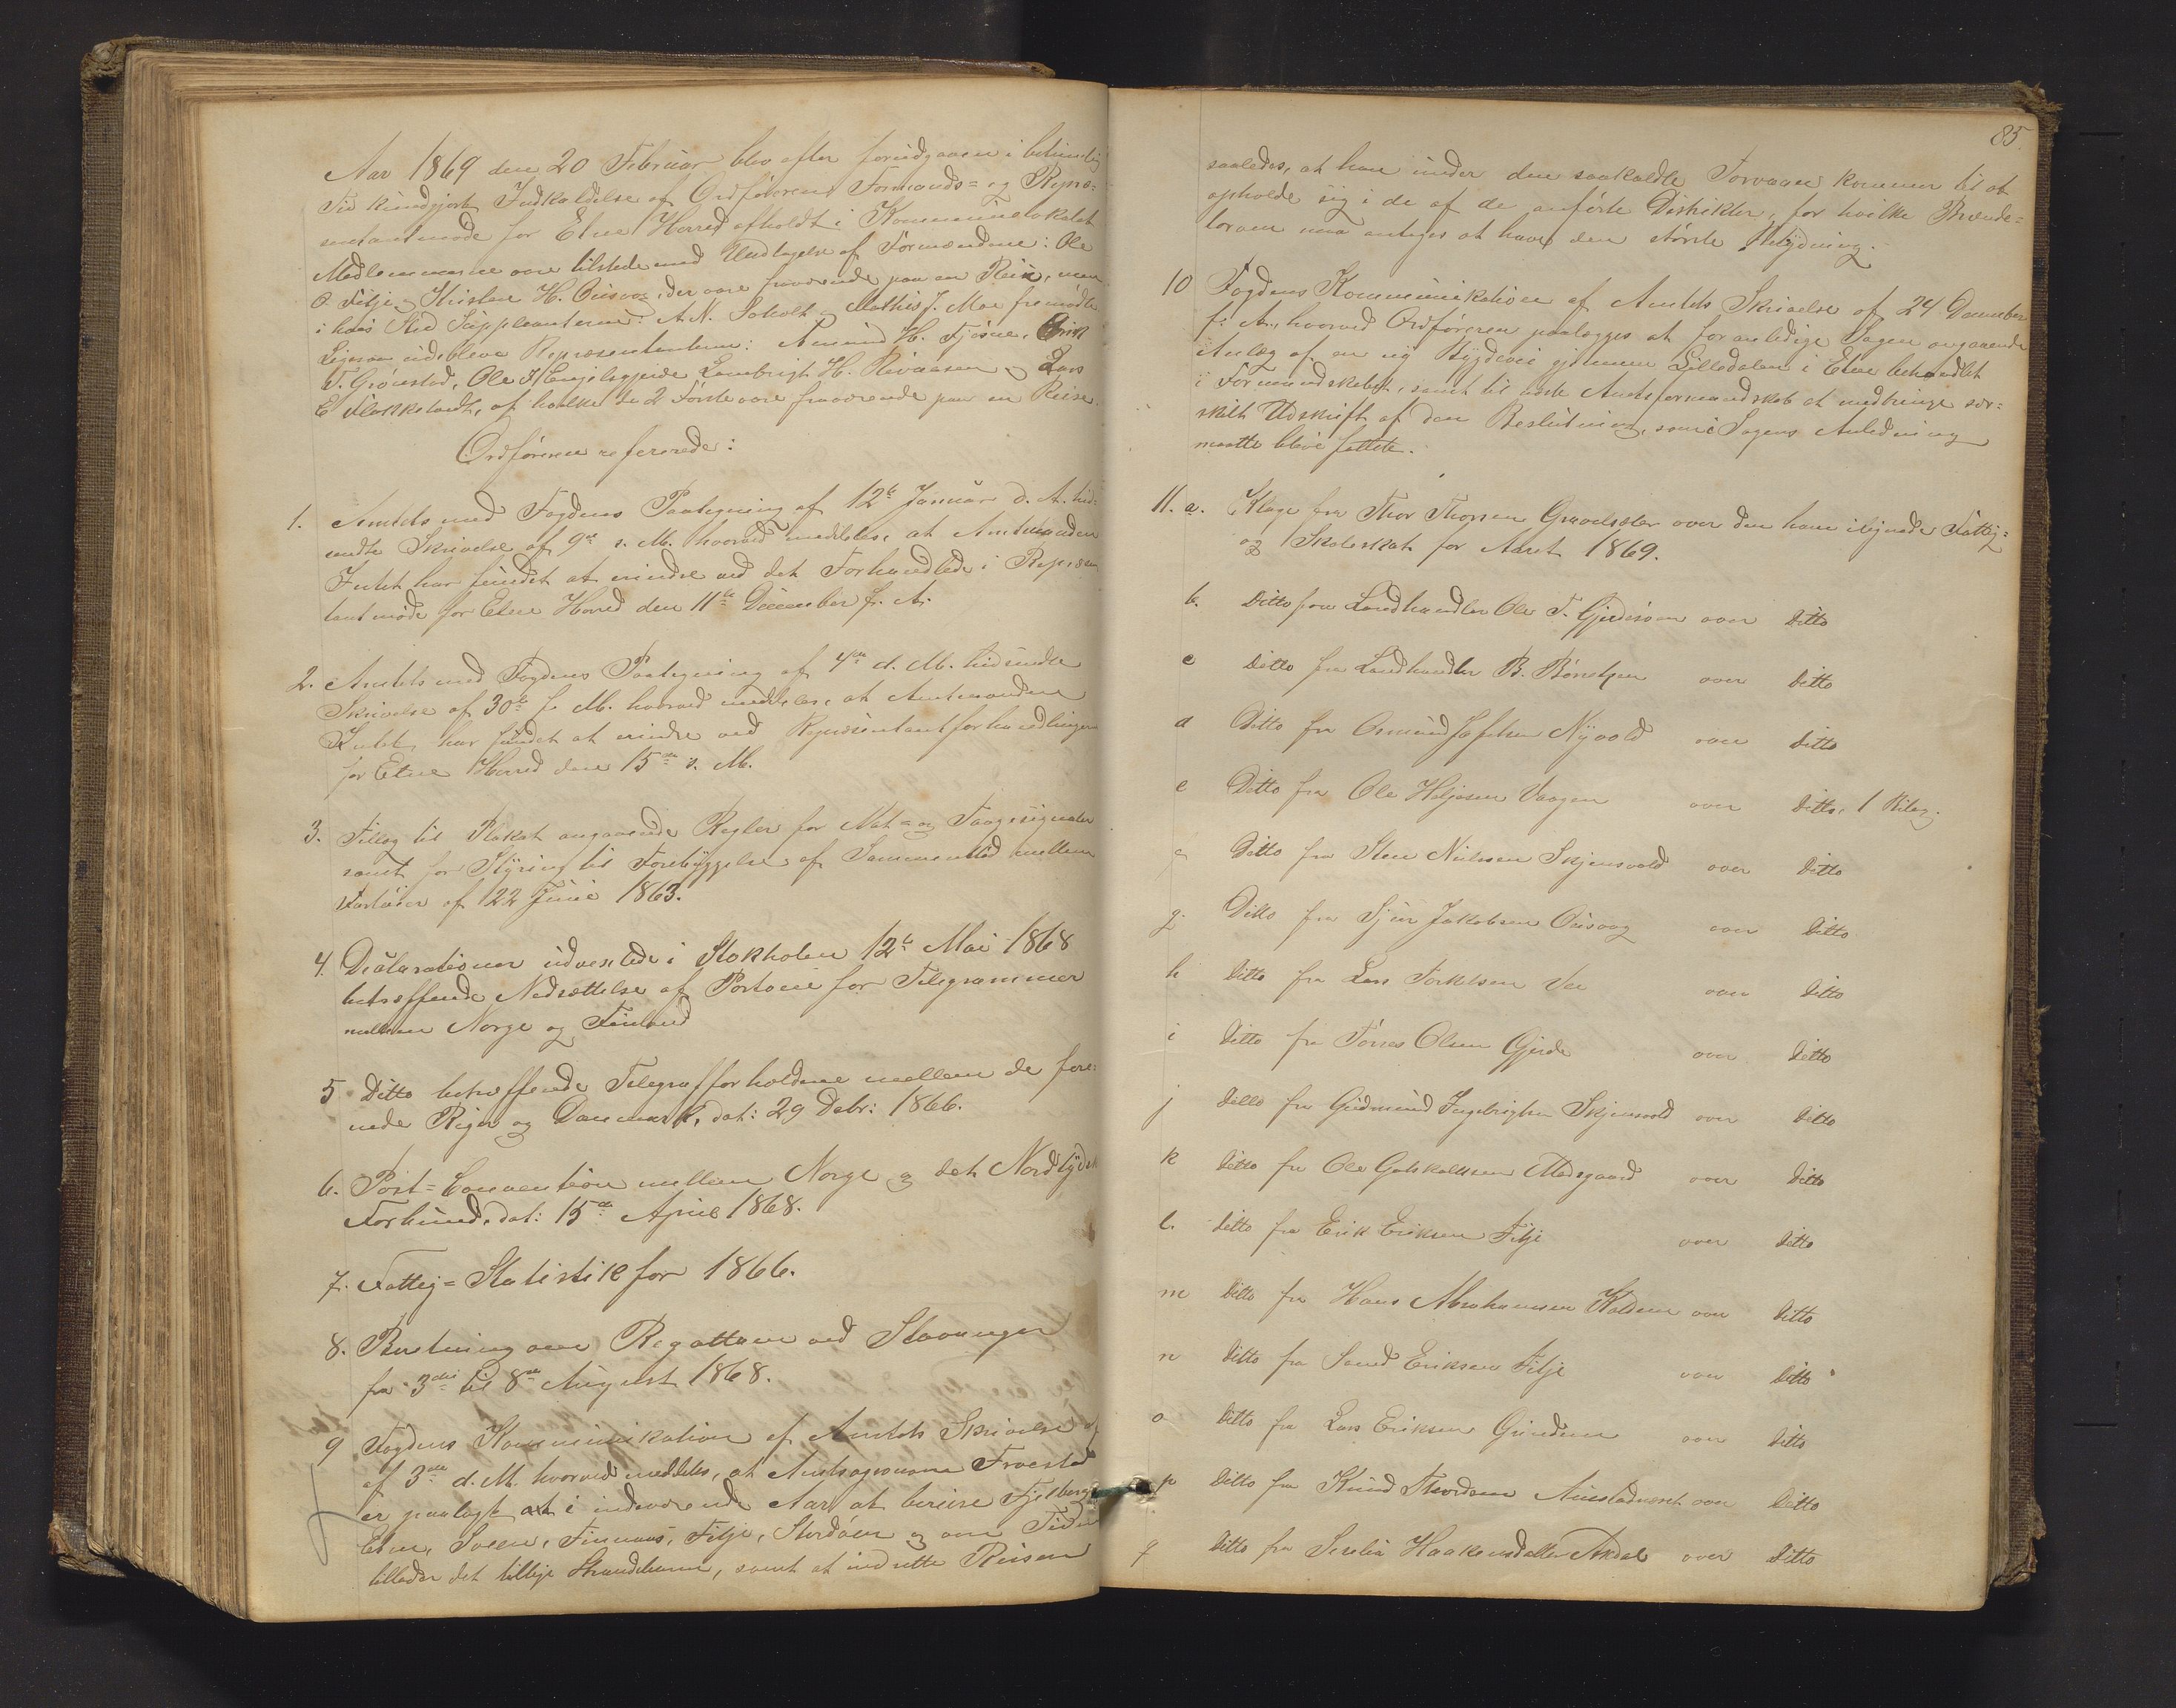 Aar 1869 den 20 Februar blev efter forudgaaen i betimelig
Tid kundgjort Indkaldelse af Ordførerens Formands- og Repræ-
sentantmøde for Etne Herred afholdt i Kommunelokalet
Medlemmerne vare tilstede med Undtagelse af Formændene: Ole
O. Fitje og Kristen H. Ousvog, der vare fraværende paa en Reise, men
i hvis Sted Suppleanterne: A. N. Soholt og Mathis J. Moe fremmødte
Ligesom udebleve Repræsentanterne: Amund H. Fjøsne, Erik
T. Grønstad, Ole H Engelsgjerde Lambrigt H. og Lars
E Flokketvedt, af hvilke de 2 Første vare fraværende paa en Reise.
Ordføreren refererede:
1. Amtets med Fogdens Paategning af 12te Januar d. A. hid-
sendte Skrivelse af 9de s. M. hvorved meddeles, at Amtmanden
Intet har fundet at erindre ved det Forhandlede i Repræsen
tantmøde for Etne Herred den 11te December f. A.
2. Amtets med Fogdens Paategning af 4de d. M. hidsendte
Skrivelse af 30te f. M. hvorved meddeles, at Amtmanden
Intet har fundet at erindre ved Repræsentantforhandlingen
for Etne Herred den 15de s. M.
3. Tillæg til Plakat angaaende Regler for Nat- og Taagesignaler
samt for Styring til Forebyggelse af Sammenstød mellem
Fartøier af 22 Juni 1863.
4. Deklarationer udvexlede i Stokholm 12te Mai 1868
betræffende Nedsættelse af Portoen for Telegrammer
mellem Norge og Finland
5 Ditto betræffende Telegrafforholdene mellem de fore-
nede Riger og Danmark, dat: 29 Debr: 1866.
6. Post-Convention mellem Norge og det Nordtydske
Forbund, dat: 15de April 1868.
7. Fattig-Statistik for 1866.
8. Beretning over Regattaen ved Stavanger
fra 3die til 8de August 1868.
9 Fogdens Kommunikation af Amtets Skrivelse
af 3die d. M. hvorved meddeles, at Amtsagronom Fræstad
er paalagt at i indeværende Aar at bereise Fjelberg,
Etne, Sveen, Finnaas, Fitje, Stordøen og om Tiden
tillader det tillige Strandebarm, samt at indrette Reisen
85.
saaledes, at han under den saakaldte Torvaan kommer til at
opholde sig i de af de anførte Distrikter, for hvilke Brænde-
torven maa antages at have den største Betydning.
10 Fogdens Kommunikation af Amtets Skrivelse af 24 December
f. A., hvorved Ordføreren paalægges at foranledige Sagen angaaende
Anlæg af en ny Bygdevei gjennem Lilledalen i Etne behandlet
i Formandskabet, samt til næste Amtsformandskab at medbringe sær-
skilt Udskrift af den Beslutning, som i Sagens Anledning
maatte blive fattet.
11. a. Klage fra Thor Thorsen Gravelsæter over den ham ilignede Fattig-
og Skoleskat for Aaret 1869.
b. Ditto fra Landhandler Ole T. over Ditto
c Ditto fra Landhandler B. Børretzen over Ditto
d Ditto fra Osmund Nyvold over Ditto
e Ditto fra Ole Helgesen Vaagen over Ditto, 1 Bilag.
Ditto fra Sten Nielsen Skjensvold over Ditto
g. Ditto fra Sjur Jakobsen Ousvog over Ditto
h Ditto fra Lars Torkelsen Vee over Ditto
i Ditto fra Tørres Olsen Gjerde over Ditto
j Ditto fra Gudmund Ingebrigtsen Skjensvold over Ditto
k Ditto fra Ole Gotskalksen Mædsgaard over Ditto
l. Ditto fra Erik Eriksen Fitje over Ditto
m Ditto fra Hans Abrahamsen Kaldem over Ditto
n Ditto fra Eriksen Fitje over Ditto
o Ditto fra Lars Eriksen Grindem over Ditto
p Ditto fra Knud Thordsen over Ditto
q Ditto fra Serelia Haakensdatter over Ditto